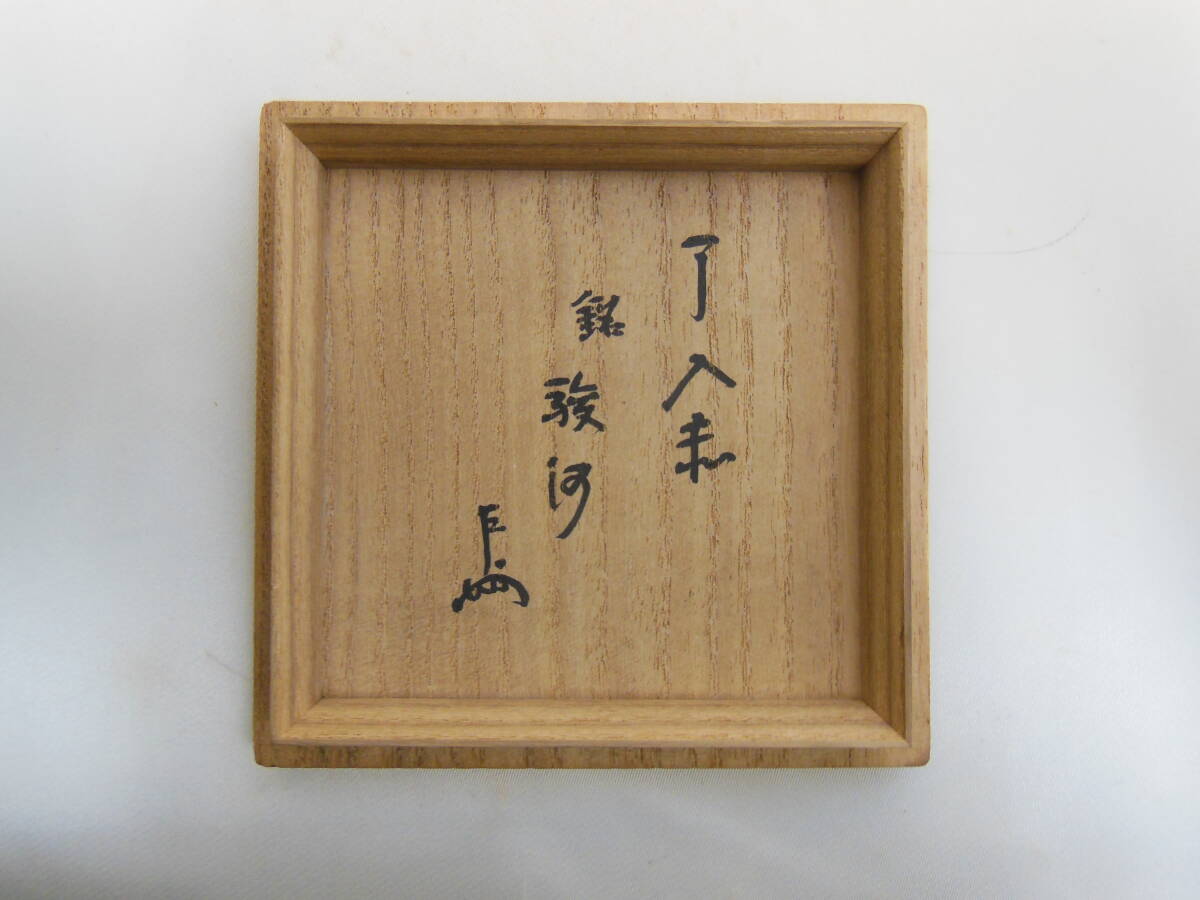 了入赤
銘 駿河